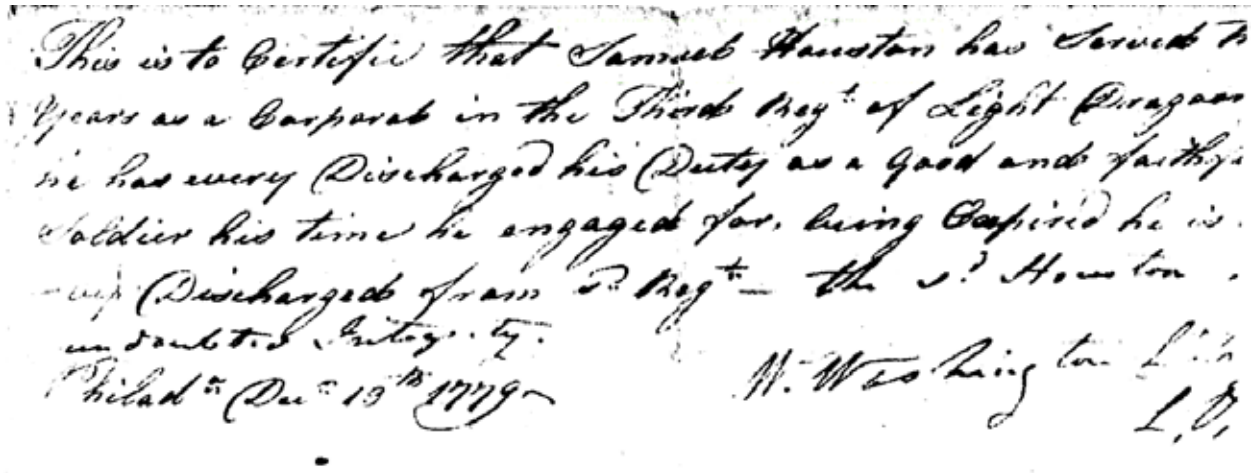 This is to Certifie that Samuel Houston has Served
Years as a Corporal in the Third Regt of Light Dragoon
he has every Discharged his Duty as a good and faithf
Soldier his time he engaged for, being Expired he is
Discharged from sd Regt — the sd Houston
undoubted Integ.ty.
Philada Decr 13th 1779
W. Washington
L. D,